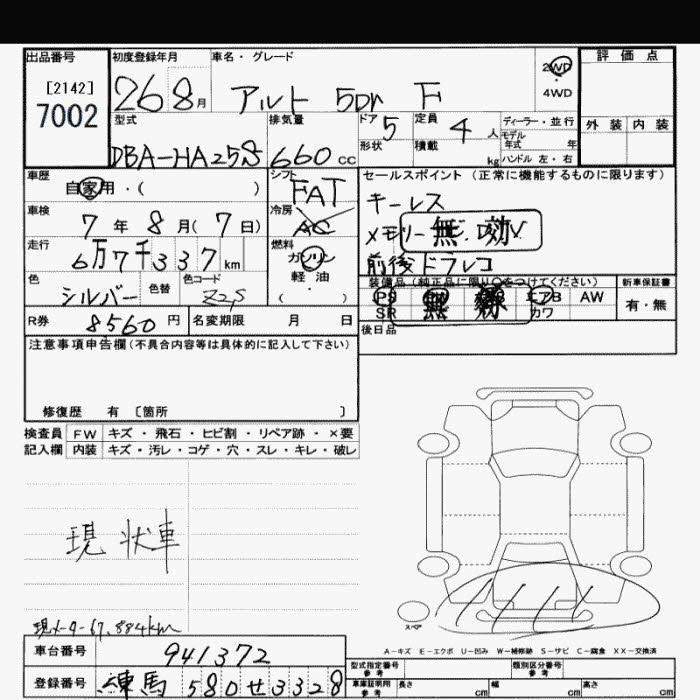 出品番号
[2142]
7002
初度登録年月
26 8月
車名・グレード
アルト 5Dr F
2WD
・
4WD
評価点
外装 内装
型式
DBA-HA25S
排気量
660 cc
ドア 5
形状
定員 4 人
積載 kg
ディーラー・並行
モデル年式 年
ハンドル 左・右
車歴
自家用・( )
シフト
FAT
セールスポイント (正常に機能するものに限ります)
キーレス
メモリー
無効
前後ドラレコ
車検
7年 8月 (7日)
冷房
AC
走行
6万7千337km
燃料
ガソリン
軽・油
( )
色
シルバー
色替
色コード
Z2S
装備品 (純正品に限り○をつけてください)
PS エアB AW
SR カワ
新車保証書
有・無
R券 8560円
名変期限 月 日
後日品
注意事項申告欄 (不具合内容等は具体的に記入して下さい)
修復歴 有 〔箇所 〕
検査員 FW キズ・飛石・ヒビ割・リペア跡・×要
記入欄 内装 キズ・汚レ・コゲ・穴・スレ・キレ・破レ
現状車
スペア
現メーター67,884km
A-キズ E-エクボ U-凹み W-補修跡 S-サビ C-腐食 XX-交換済
車台番号 941372
登録番号 練馬 580 せ 3328
型式指定番号
参考
類別区分番号
参考
車庫証明用
参考
長さ cm 幅 cm 高さ cm